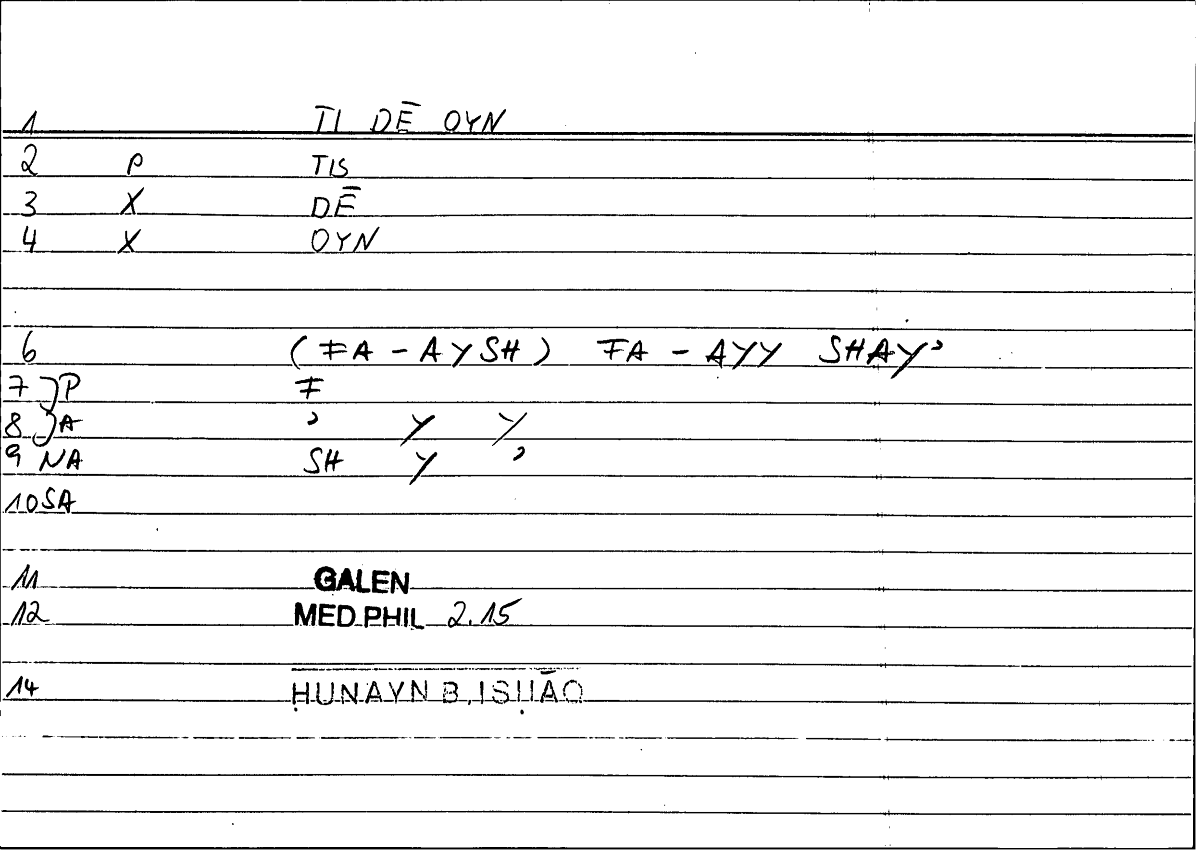 1 TI DĒ OYN
2 P TIS
3 X DĒ
4 X OYN
6 (FA - AYSH) FA - AYY SHAY'
7 P F
8 A ' Y Y
9 NA SH Y '
10 SA
11 GALEN
12 MED.PHIL 2.15
14 ḤUNAYN B. ISḤĀQ